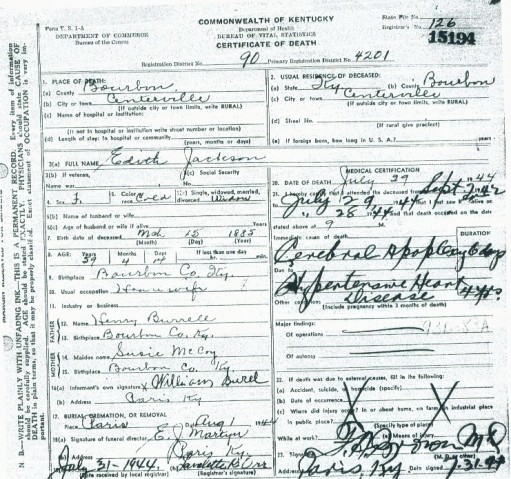 COMMONWEALTH OF KENTUCKY
Form V. S. 1-A
DEPARTMENT OF COMMERCE
Bureau of the Census
Department of Health
BUREAU OF VITAL STATISTICS
CERTIFICATE OF DEATH
State File No.
Registrar's No. 126
15194
Registration District No. 90 Primary Registration District No. 4201
1. PLACE OF DEATH:
(a) County Bourbon
(b) City or town Centerville
(If outside city or town limits, write RURAL)
(c) Name of hospital or institution:
(If not in hospital or institution write street number or location)
(d) Length of stay: In hospital or community
(years, months or days)
2. USUAL RESIDENCE OF DECEASED:
(a) State Ky (b) County Bourbon
(c) City or town Centerville
(If outside city or town limits, write RURAL)
(d) Street No.
(If rural give precinct)
(e) If foreign born, how long in U.S.A.? years
3(a) FULL NAME Edith Jackson
3(b) If veteran, Name war
3(c) Social Security No.
4. Sex F. 5. Color or race Col'd 6(a) Single, widowed, married, divorced Widow
6(b) Name of husband or wife
6(c) Age of husband or wife if alive Years
7. Birth date of deceased Mch 15 1885
(Month) (Day) (Year)
8. AGE: Years 59 Months 4 Days 14 If less than one day hr. min.
9. Birthplace Bourbon Co. Ky.
10. Usual occupation Housewife
11. Industry or business
FATHER
12. Name Henry Burrell
13. Birthplace Bourbon Co. Ky.
MOTHER
14. Maiden name Susie McCoy
15. Birthplace Bourbon Co. Ky
16(a) Informant's own signature William Burel
(b) Address Paris Ky
17. BURIAL, CREMATION, OR REMOVAL
Place Paris Date Aug 1 1944
18(a) Signature of funeral director E. J. Martyn
(b) Address Paris Ky
July 31-1944
(Date received by local registrar) (Registrar's signature)
MEDICAL CERTIFICATION
20. DATE OF DEATH July 29 1944
21. I hereby certify that I attended the deceased from Sept. 7 42
July 29 1944 that I last saw alive on
28 44 and that death occurred on the date
stated above at 9 M.
Immediate cause of death
DURATION
Cerebral Apoplexy 6 days
Due to
Hypertensive Heart
Disease 4 yrs.
Other conditions
(Include pregnancy within 3 months of death)
Major findings:
Of operations
Of autopsy
22. If death was due to external causes, fill in the following:
(a) Accident, suicide, homicide (specify)
(b) Date of occurrence
(c) Where did injury occur? In or about home, on farm, in industrial place
in public place?
(Specify type of place)
While at work? (e) Means of injury
23. Signature M D
(M.D. or other)
Address Paris, Ky Date signed 7.31.44
N. B.—WRITE PLAINLY WITH UNFADING INK—THIS IS A PERMANENT RECORD. Every item of information
should be carefully supplied. AGE should be stated EXACTLY. PHYSICIANS should state CAUSE OF
DEATH in plain terms, so that it may be properly classified. Exact statement of OCCUPATION is very im-
portant.